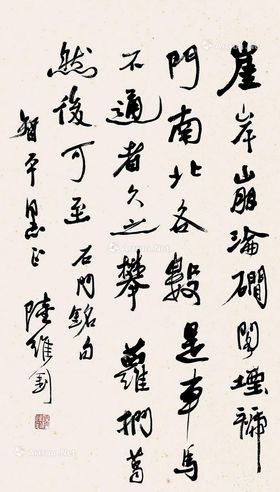 崖岸崩淪磵閣堙褫
門南北各數里車馬
不通者久之攀蘿捫葛
然後可至 石門銘句
智平星正
陸維釗